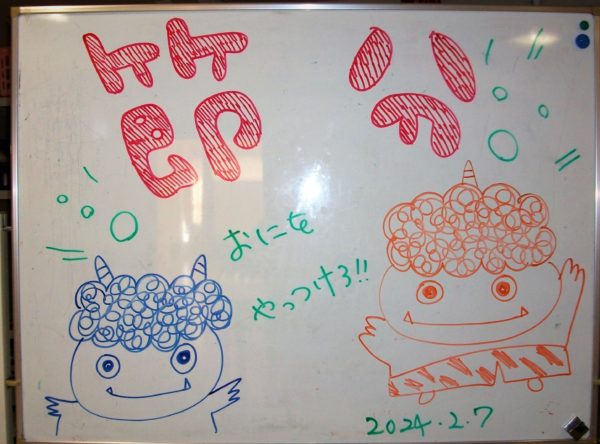 節分
おにを
やっつけろ!!
2024.2.7